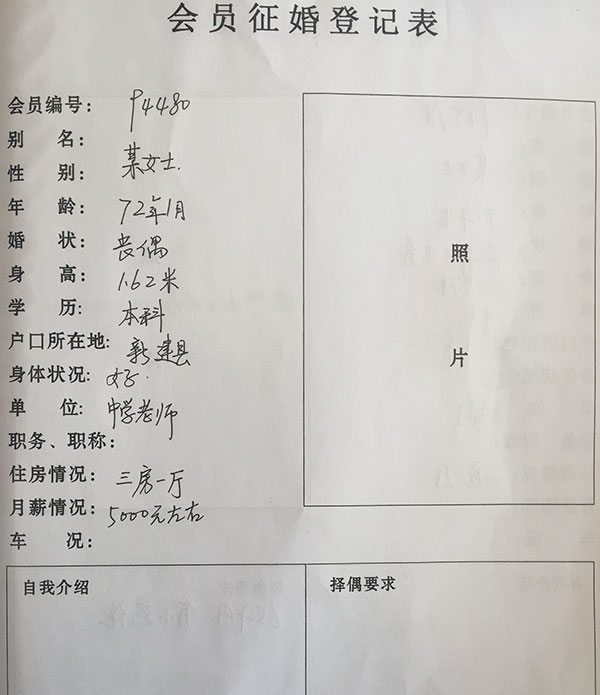 会员征婚登记表
会员编号： P4480
别 名：
性 别： 某女士.
年 龄： 72年1月
婚 状： 丧偶
身 高： 1.62米
学 历： 本科
户口所在地： 新建县
身体状况： 好.
单 位： 中学老师
职务、职称：
住房情况： 三房一厅
月薪情况： 5000元左右
车 况：
照
片
自我介绍
择偶要求